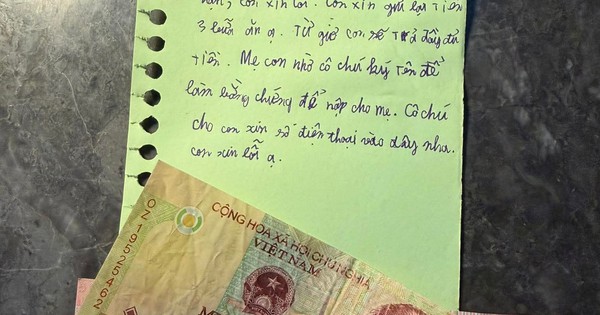 con xin lỗi. Con xin gửi lại tiền
3 buổi ăn ạ. Từ giờ con sẽ trả đầy đủ
tiền. Mẹ con nhờ cô chú ký tên để
làm bằng chứng để nộp cho mẹ. Cô chú
cho con xin số điện thoại vào đây nha.
con xin lỗi ạ.
CỘNG HÒA XÃ HỘI CHỦ NGHĨA
VIỆT NAM
OZ 19525462